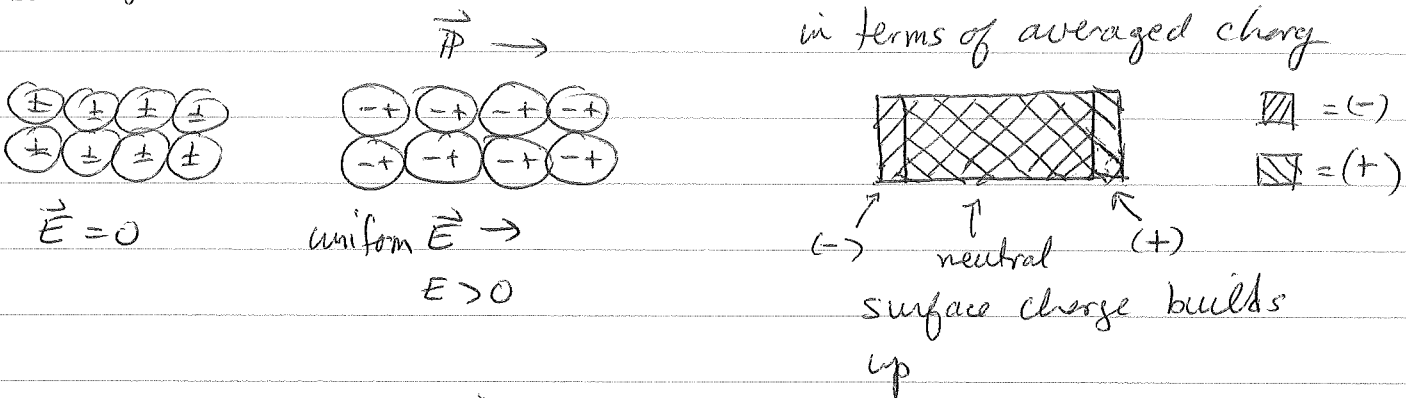 P →
in terms of averaged charg
± ± ± ±
± ± ± ±
-+ -+ -+ -+
-+ -+ -+ -+
= (-)
= (+)
E = 0
uniform E →
E > 0
(-)
neutral
(+)
surface charge builds
up